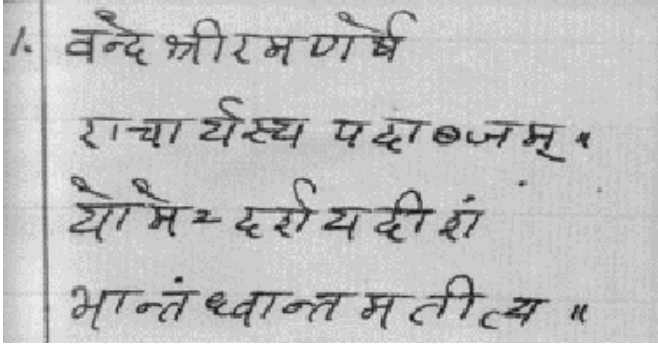 1. वन्दे श्रीरमणर्षे
राचार्यस्य पदाब्जम् ॥
यो मेऽदर्शयदीशं
भान्तं ध्वान्तमतीत्य ॥